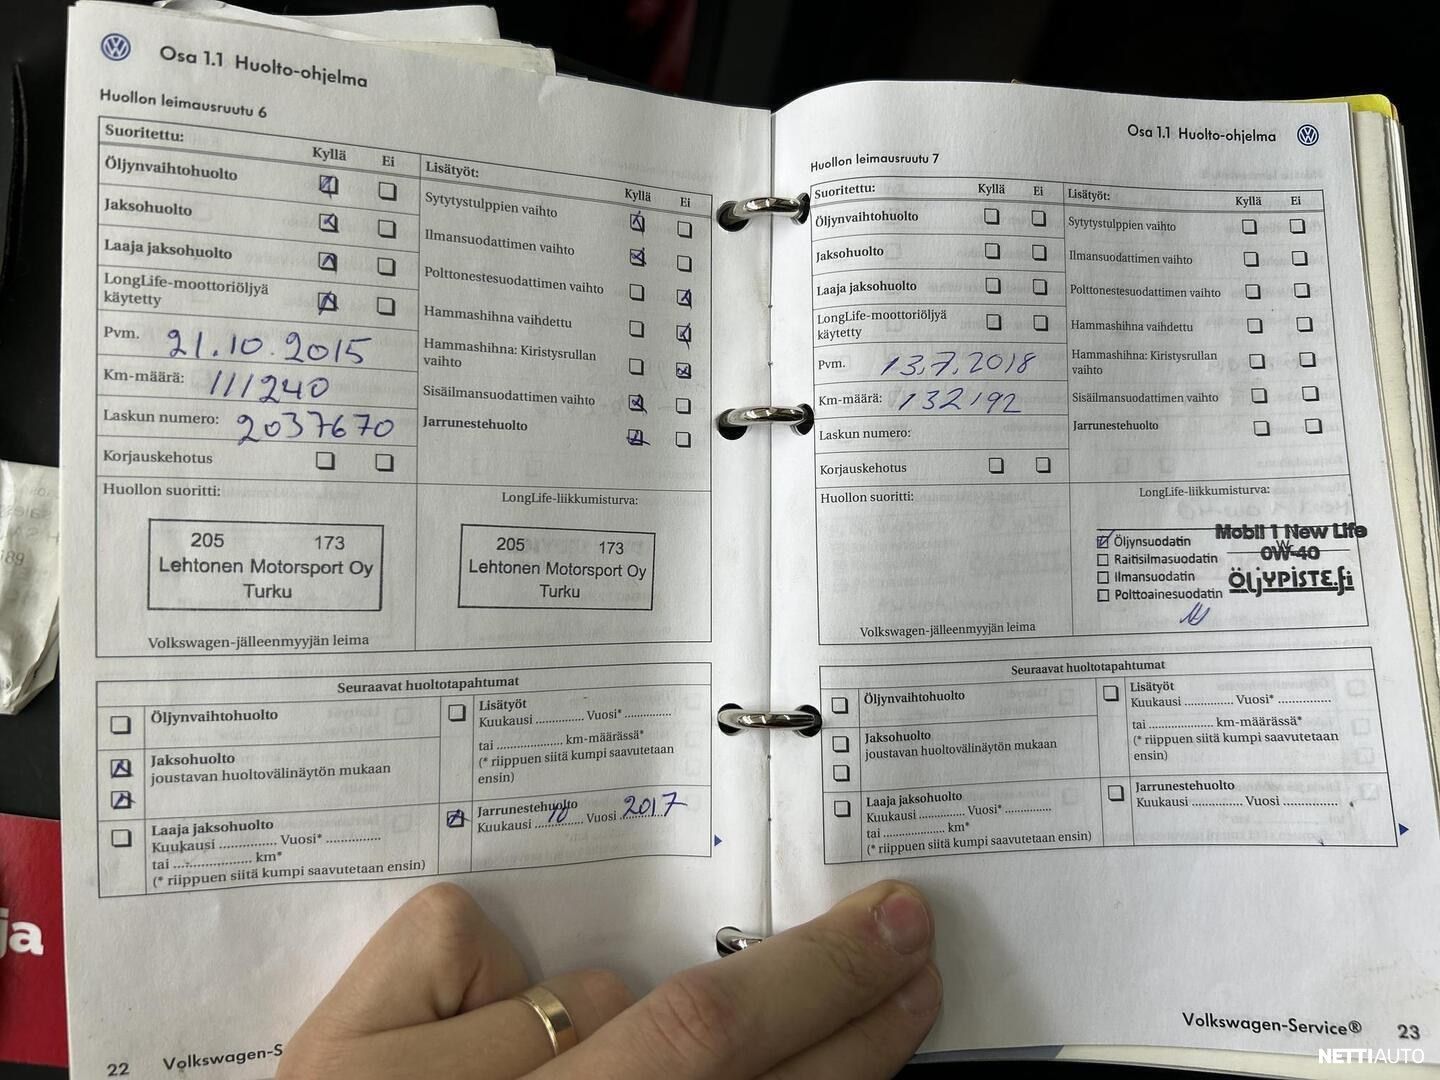 Osa 1.1 Huolto-ohjelma
Huollon leimausruutu 6
Suoritettu:
Kyllä Ei
Öljynvaihtohuolto
Jaksohuolto
Laaja jaksohuolto
LongLife-moottoriöljyä
käytetty
Pvm. 21.10.2015
Km-määrä: 111240
Laskun numero: 2037670
Korjauskehotus
Lisätyöt:
Kyllä Ei
Sytytystulppien vaihto
Ilmansuodattimen vaihto
Polttonestesuodattimen vaihto
Hammashihna vaihdettu
Hammashihna: Kiristysrullan
vaihto
Sisäilmansuodattimen vaihto
Jarrunestehuolto
Huollon suoritti:
205 173
Lehtonen Motorsport Oy
Turku
Volkswagen-jälleenmyyjän leima
LongLife-liikkumisturva:
205 173
Lehtonen Motorsport Oy
Turku
Seuraavat huoltotapahtumat
Öljynvaihtohuolto
Jaksohuolto
joustavan huoltovälinäytön mukaan
Laaja jaksohuolto
Kuukausi .............. Vuosi* ..............
tai .................... km*
(* riippuen siitä kumpi saavutetaan ensin)
Lisätyöt
Kuukausi ............. Vuosi* .............
tai .................... km-määrässä*
(* riippuen siitä kumpi saavutetaan
ensin)
Jarrunestehuolto
Kuukausi 10 Vuosi 2017
22 Volkswagen-S
Osa 1.1 Huolto-ohjelma
Huollon leimausruutu 7
Suoritettu:
Kyllä Ei
Öljynvaihtohuolto
Jaksohuolto
Laaja jaksohuolto
LongLife-moottoriöljyä
käytetty
Pvm. 13.7.2018
Km-määrä: 132192
Laskun numero:
Korjauskehotus
Lisätyöt:
Kyllä Ei
Sytytystulppien vaihto
Ilmansuodattimen vaihto
Polttonestesuodattimen vaihto
Hammashihna vaihdettu
Hammashihna: Kiristysrullan
vaihto
Sisäilmansuodattimen vaihto
Jarrunestehuolto
Huollon suoritti:
Volkswagen-jälleenmyyjän leima
LongLife-liikkumisturva:
Öljynsuodatin
Raitisilmasuodatin
Ilmansuodatin
Polttoainesuodatin
Mobil 1 New Life
0W-40
ÖLJYPISTE.fi
Seuraavat huoltotapahtumat
Öljynvaihtohuolto
Jaksohuolto
joustavan huoltovälinäytön mukaan
Laaja jaksohuolto
Kuukausi .............. Vuosi* ..............
tai .................... km*
(* riippuen siitä kumpi saavutetaan ensin)
Lisätyöt
Kuukausi .............. Vuosi* ..............
tai .................... km-määrässä*
(* riippuen siitä kumpi saavutetaan
ensin)
Jarrunestehuolto
Kuukausi .............. Vuosi ..............
Volkswagen-Service® 23
ja
NETTIAUTO